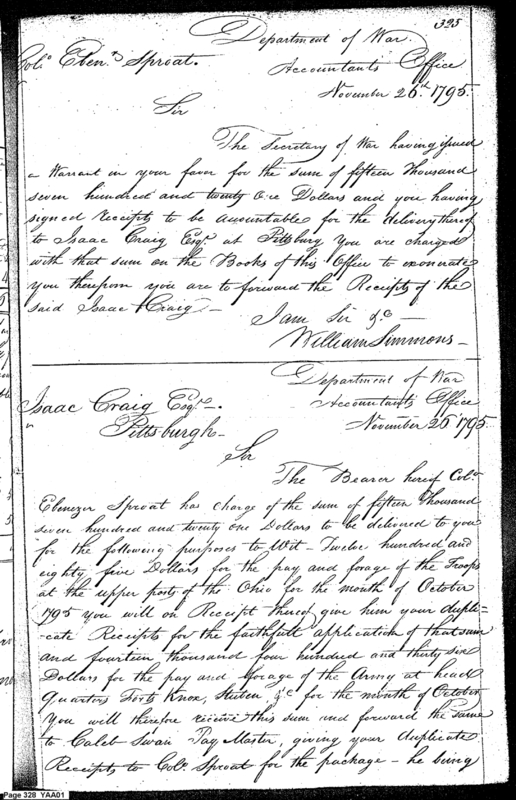 325
Department of War.
Colo. Ebenr. Sproat.
Accountants Office
November 26th. 1795.
Sir
The Secretary of War having issued
a Warrant in your favor for the sum of fifteen Thousand
seven hundred and twenty One Dollars and you having
signed receipts to be accountable for the delivery thereof
to Isaac Craig Esqr. at Pittsburg You are charged
with that sum on the Books of this Office to exonerate
you therefrom you are to forward the Receipts of the
said Isaac Craig—
I am Sir &c—
William Simmons—
Department of War
Isaac Craig Esqr.
Accountants Office
Pittsburgh—
November 26 1795.
Sir
The Bearer hereof Colo.
Ebenezer Sproat has charge of the sum of fifteen Thousand
seven hundred and twenty one Dollars to be delivered to you
for the following purposes to Wit— Twelve hundred and
eighty five Dollars for the pay and forage of the Troops
at the upper posts of the Ohio for the month of October
1795 you will on Receipt thereof give him your dupli=
cate Receipts for the faithfull application of that sum
and fourteen thousand four hundred and thirty six
Dollars for the pay and forage of the Army at head
Quarters Forts Knox, Steuben &c for the month of October
You will therefore receive this sum and forward the same
to Caleb Swan Pay Master, giving your duplicate
Receipts to Colo. Sproat for the package— he being
Page 328 YAA01